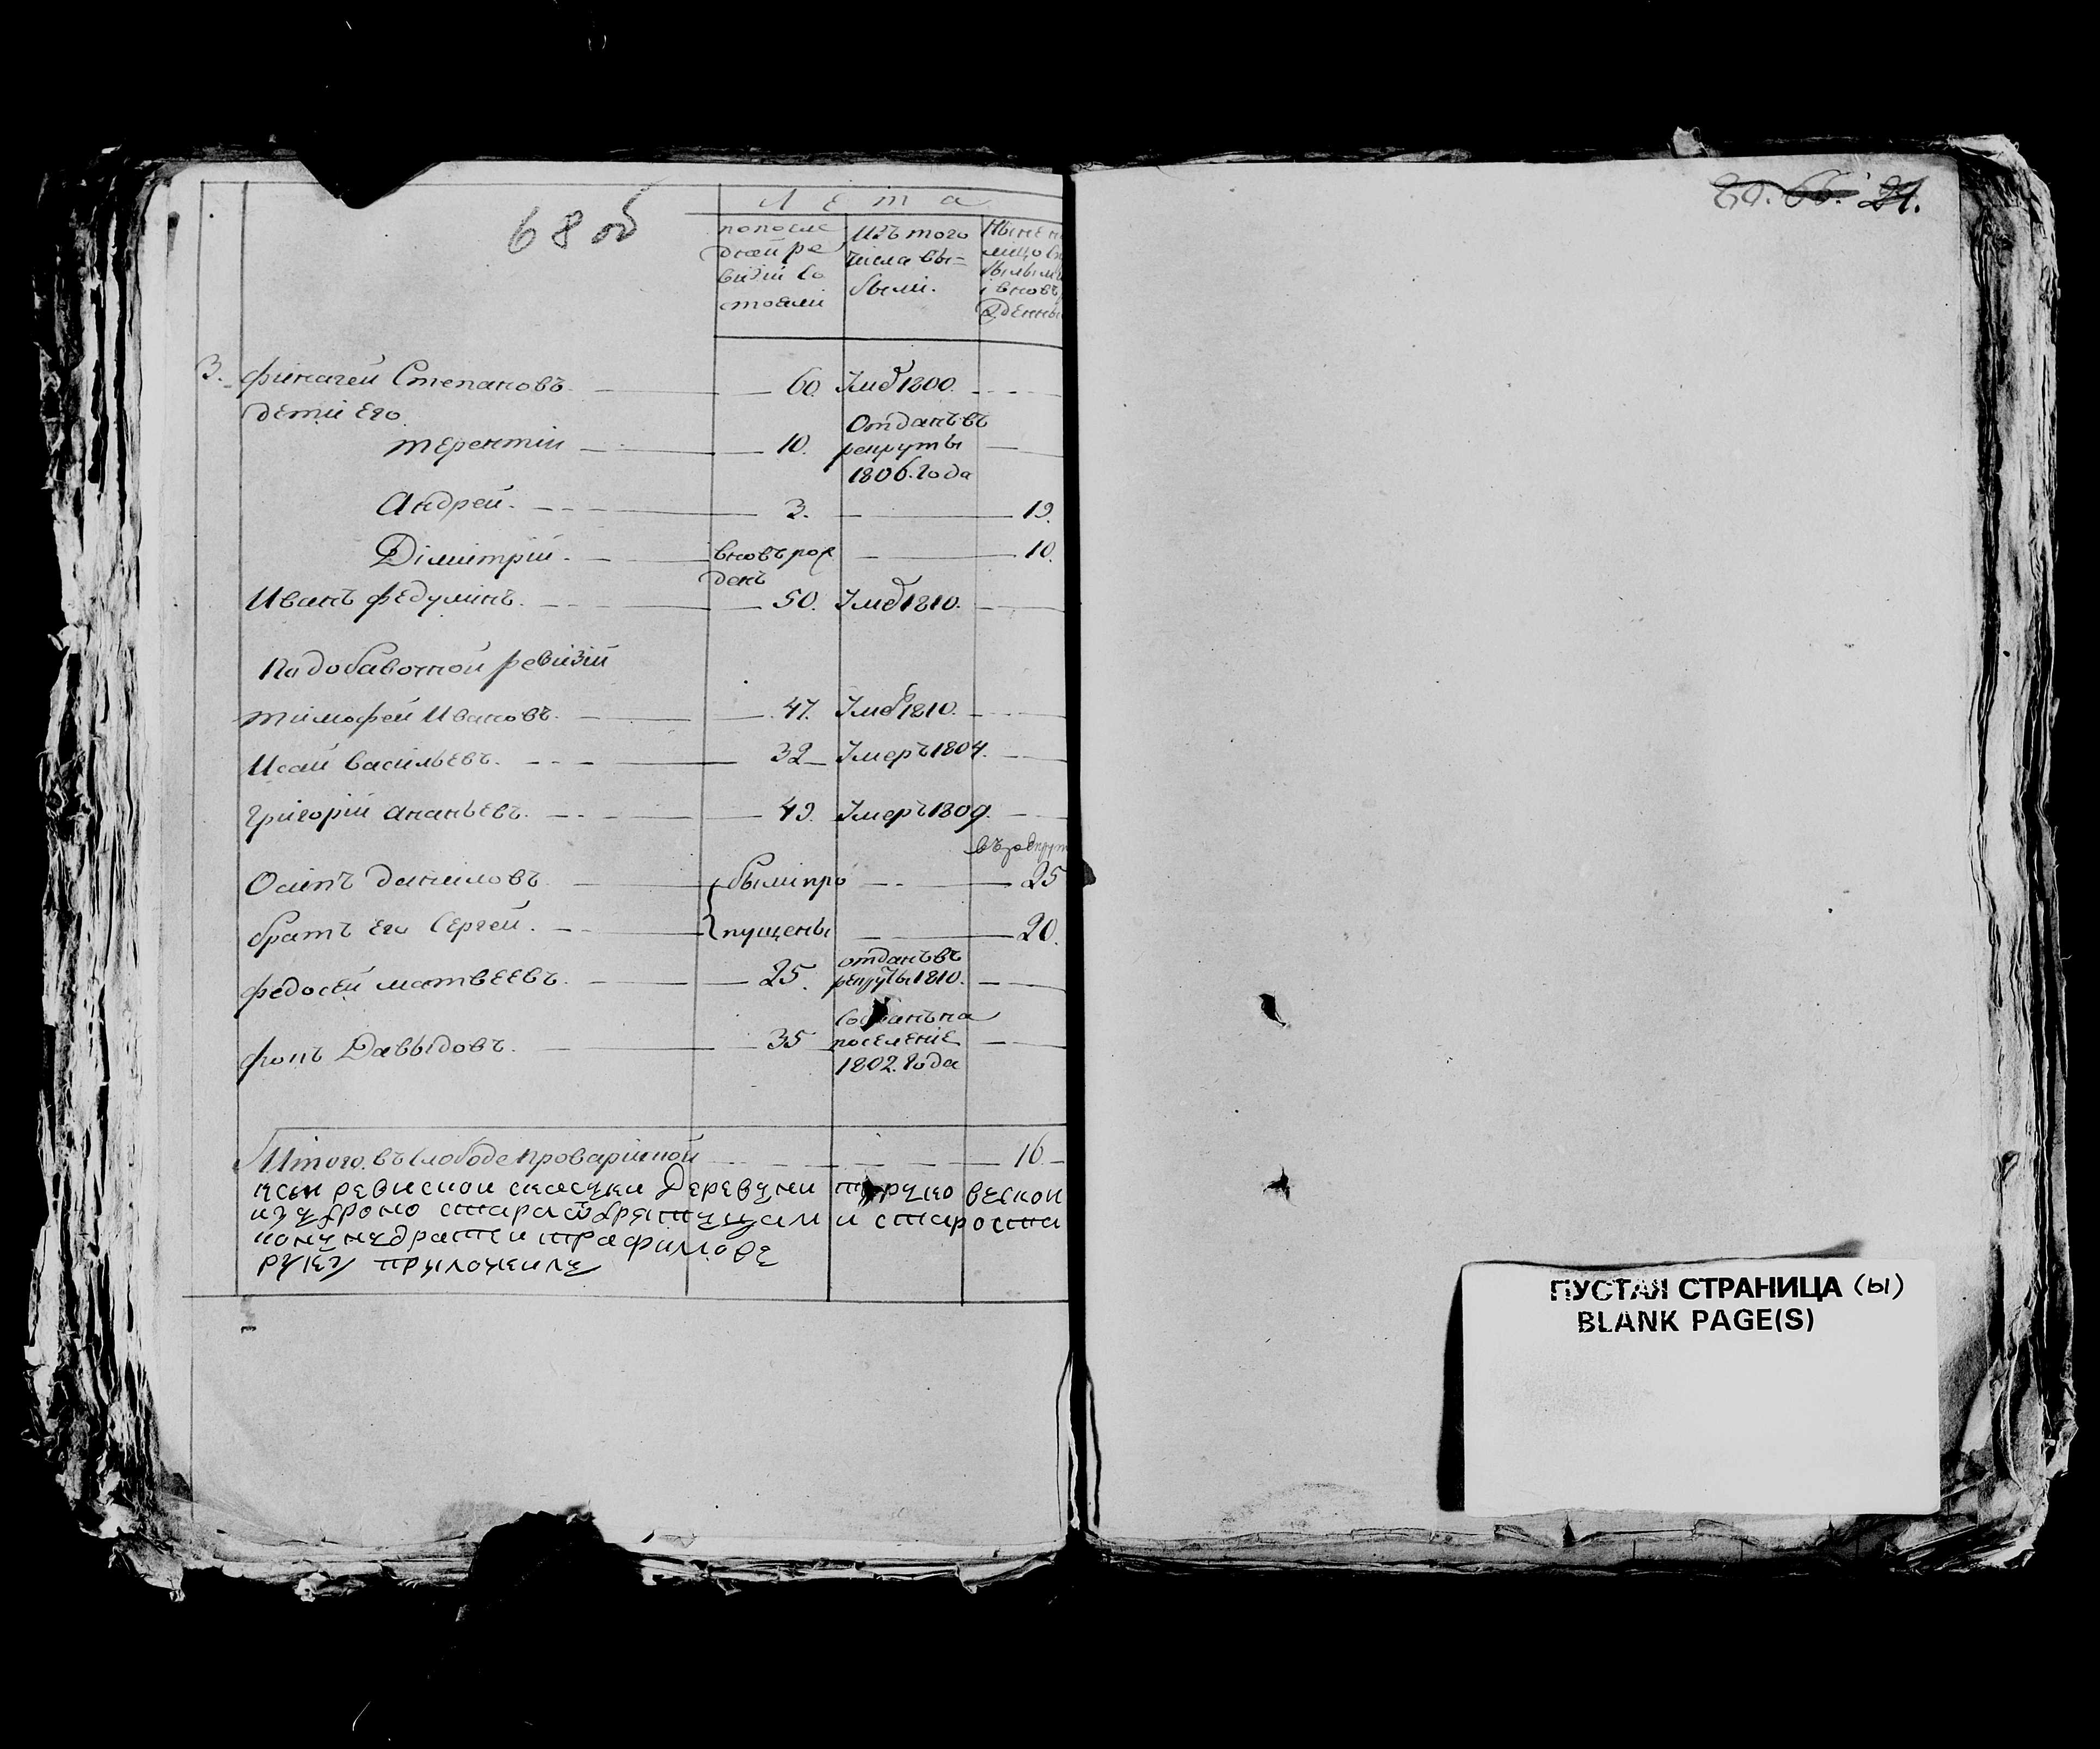 68 об
Лета
попосле
дней ре
визіи со
стояли
Изъ того
числа вы=
были.
3. финагей Степановъ 60. Умеᵈ 1800.
дети Его
терентіи 10. Отданъ въ
рекруты
1806. года
Андрей. 3. 19.
Дімитрій. вновь рож 10.
денъ
Иванъ федулинъ. 50. Умеᵈ 1810.
По добавочной ревизіи
тимофеи Ивановъ. 47. Умеᵈ 1810.
Исаи васильевъ. 32 Умеръ 1804.
Григоріи ананьевъ. 49. Умеръ 1809.
Осипъ даниловъ. были про 25
братъ его Сергеи. пущены 20.
федосеи матвеевъ. 25. отданъ въ
рекруты 1810.
Давыдовъ. 35 Сосланъ на
поселеніе
1802. года
Итого. въ слободе проварнинной 16
ревиской Деревни
и староста
руку приложилъ
21.
ПУСТАЯ СТРАНИЦА (Ы)
BLANK PAGE(S)